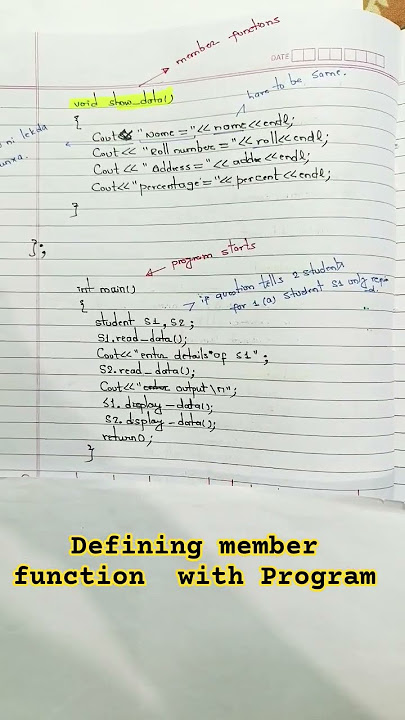 member functions
DATE
void show_data()
have to be same.
{
ni lekda
Cout << "Name = "<< name<<endl;
Cout << "Roll number = "<< roll<<endl;
Cout << " Address = "<< addre<<endl;
Cout<<"percentage = "<< percent<<endl;
}
};
program starts
int main()
if question tells 2 students
for 1 (a) student s1 only
{
student s1, s2;
S1.read_data();
Cout<<"enter details of s1" ;
S2.read_data();
Cout<<" output \n";
S1. display-data();
S2. display-data();
return 0;
}
Defining member
function with Program